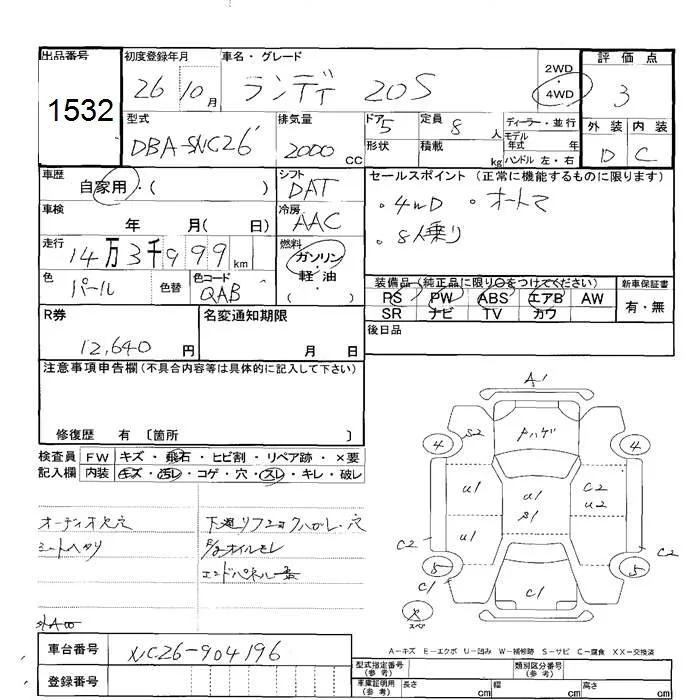 出品番号
1532
初度登録年月
26 10月
車名・グレード
ランディ 20S
2WD
4WD
評価点
3
外装 内装
D C
型式
DBA-SNC26
排気量
2000 CC
ドア 5
形状
定員 8 人
積載 kg
ディーラー・並行
モデル
年式 年
ハンドル 左・右
車歴
自家用・( )
シフト
DAT
車検
年 月( 日)
冷房
AAC
走行
14万3千999km
燃料
ガソリン
軽・油
( ・ )
色
パール
色替
色コード
QAB
セールスポイント (正常に機能するものに限ります)
・4WD ・オートマ
・8人乗り
装備品(純正品に限り○をつけてください)
PS PW ABS エアB AW
SR ナビ TV カワ
新車保証書
有・無
後日品
R券
12,640 円
名変通知期限
月 日
注意事項申告欄(不具合内容等は具体的に記入して下さい)
修復歴 有 〔箇所 〕
検査員
記入欄
FW キズ・飛石・ヒビ割・リペア跡・×要
内装 キズ・汚レ・コゲ・穴・スレ・キレ・破レ
オーディオ欠穴
シートヘタリ
外A00
車台番号
NC26-904196
登録番号
A1
S2
ハゲ
4
4
U1
U1
S1
C2
U2
U1
C2
C2
5
5
C1
C1
スペア
A-キズ E-エクボ U-凹み W-補修跡 S-サビ C-腐食 XX-交換済
型式指定番号
(参考)
類別区分番号
(参考)
車庫証明用
(参考)
長さ cm
幅 cm
高さ cm